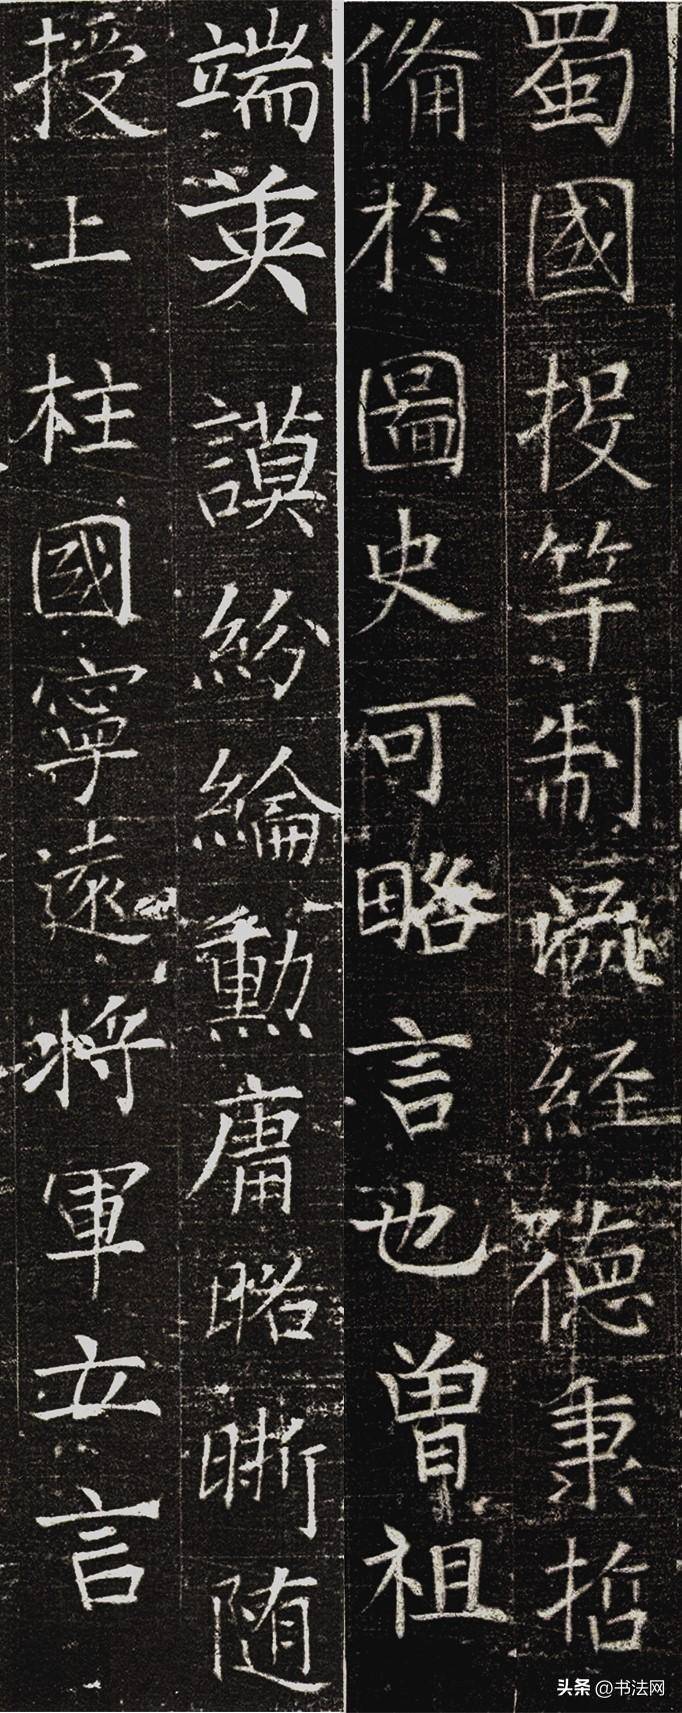 蜀國投竿制㵄經德秉哲
俻於圖史可略言也曾祖
端英謨紛綸勳庸昭晣随
授上柱國寧遠将軍立言
头条 @书法网